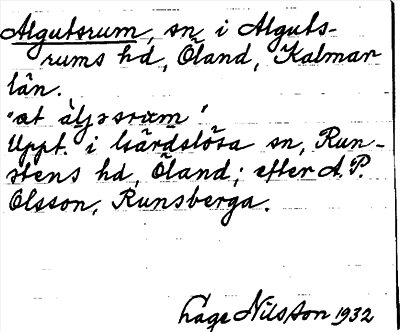 Algutsrum, sn i Alguts-
rums hd, Öland, Kalmar
län.
"æt àljəsræm'
Uppt. i Gärdslösa sn, Run-
stens hd, Öland; efter A. P.
Olsson, Runsberga.
Låge Nilsson 1932